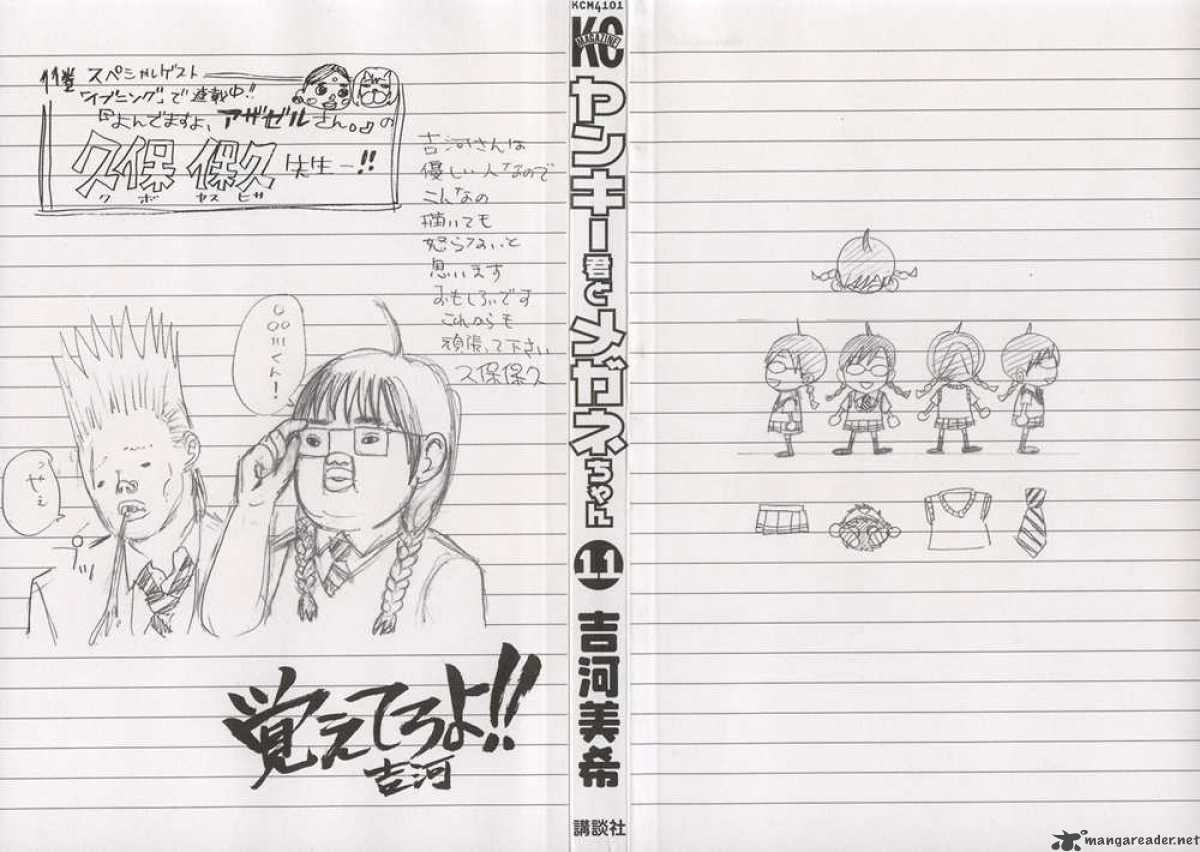 スペシャルゲスト
「イブニング」で連載中!!
『よんでますよ、アザゼルさん。』の
久保 保久 先生ー!!
クボ ヤス ヒサ
吉河さんは
優しい人なので
こんなの
描いても
怒らないと
思います
おもしろいです
これからも
頑張って下さい
久保保久
川くん!
覚えてろよ!!
吉河
KCM4101
KC
MAGAZINE
ヤンキー君とメガネちゃん
11
吉河美希
講談社
mangareader.net